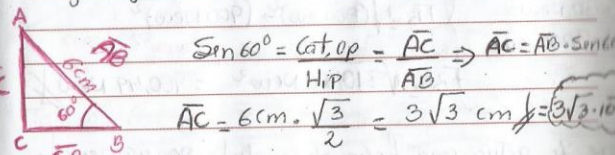 A
AB
6cm
60°
C
B
Sen60° = Cat.op / Hip = AC / AB ⇒ AC = AB · Sen60
AC = 6cm · √3 / 2 = 3√3 cm
= (3√3 · 10